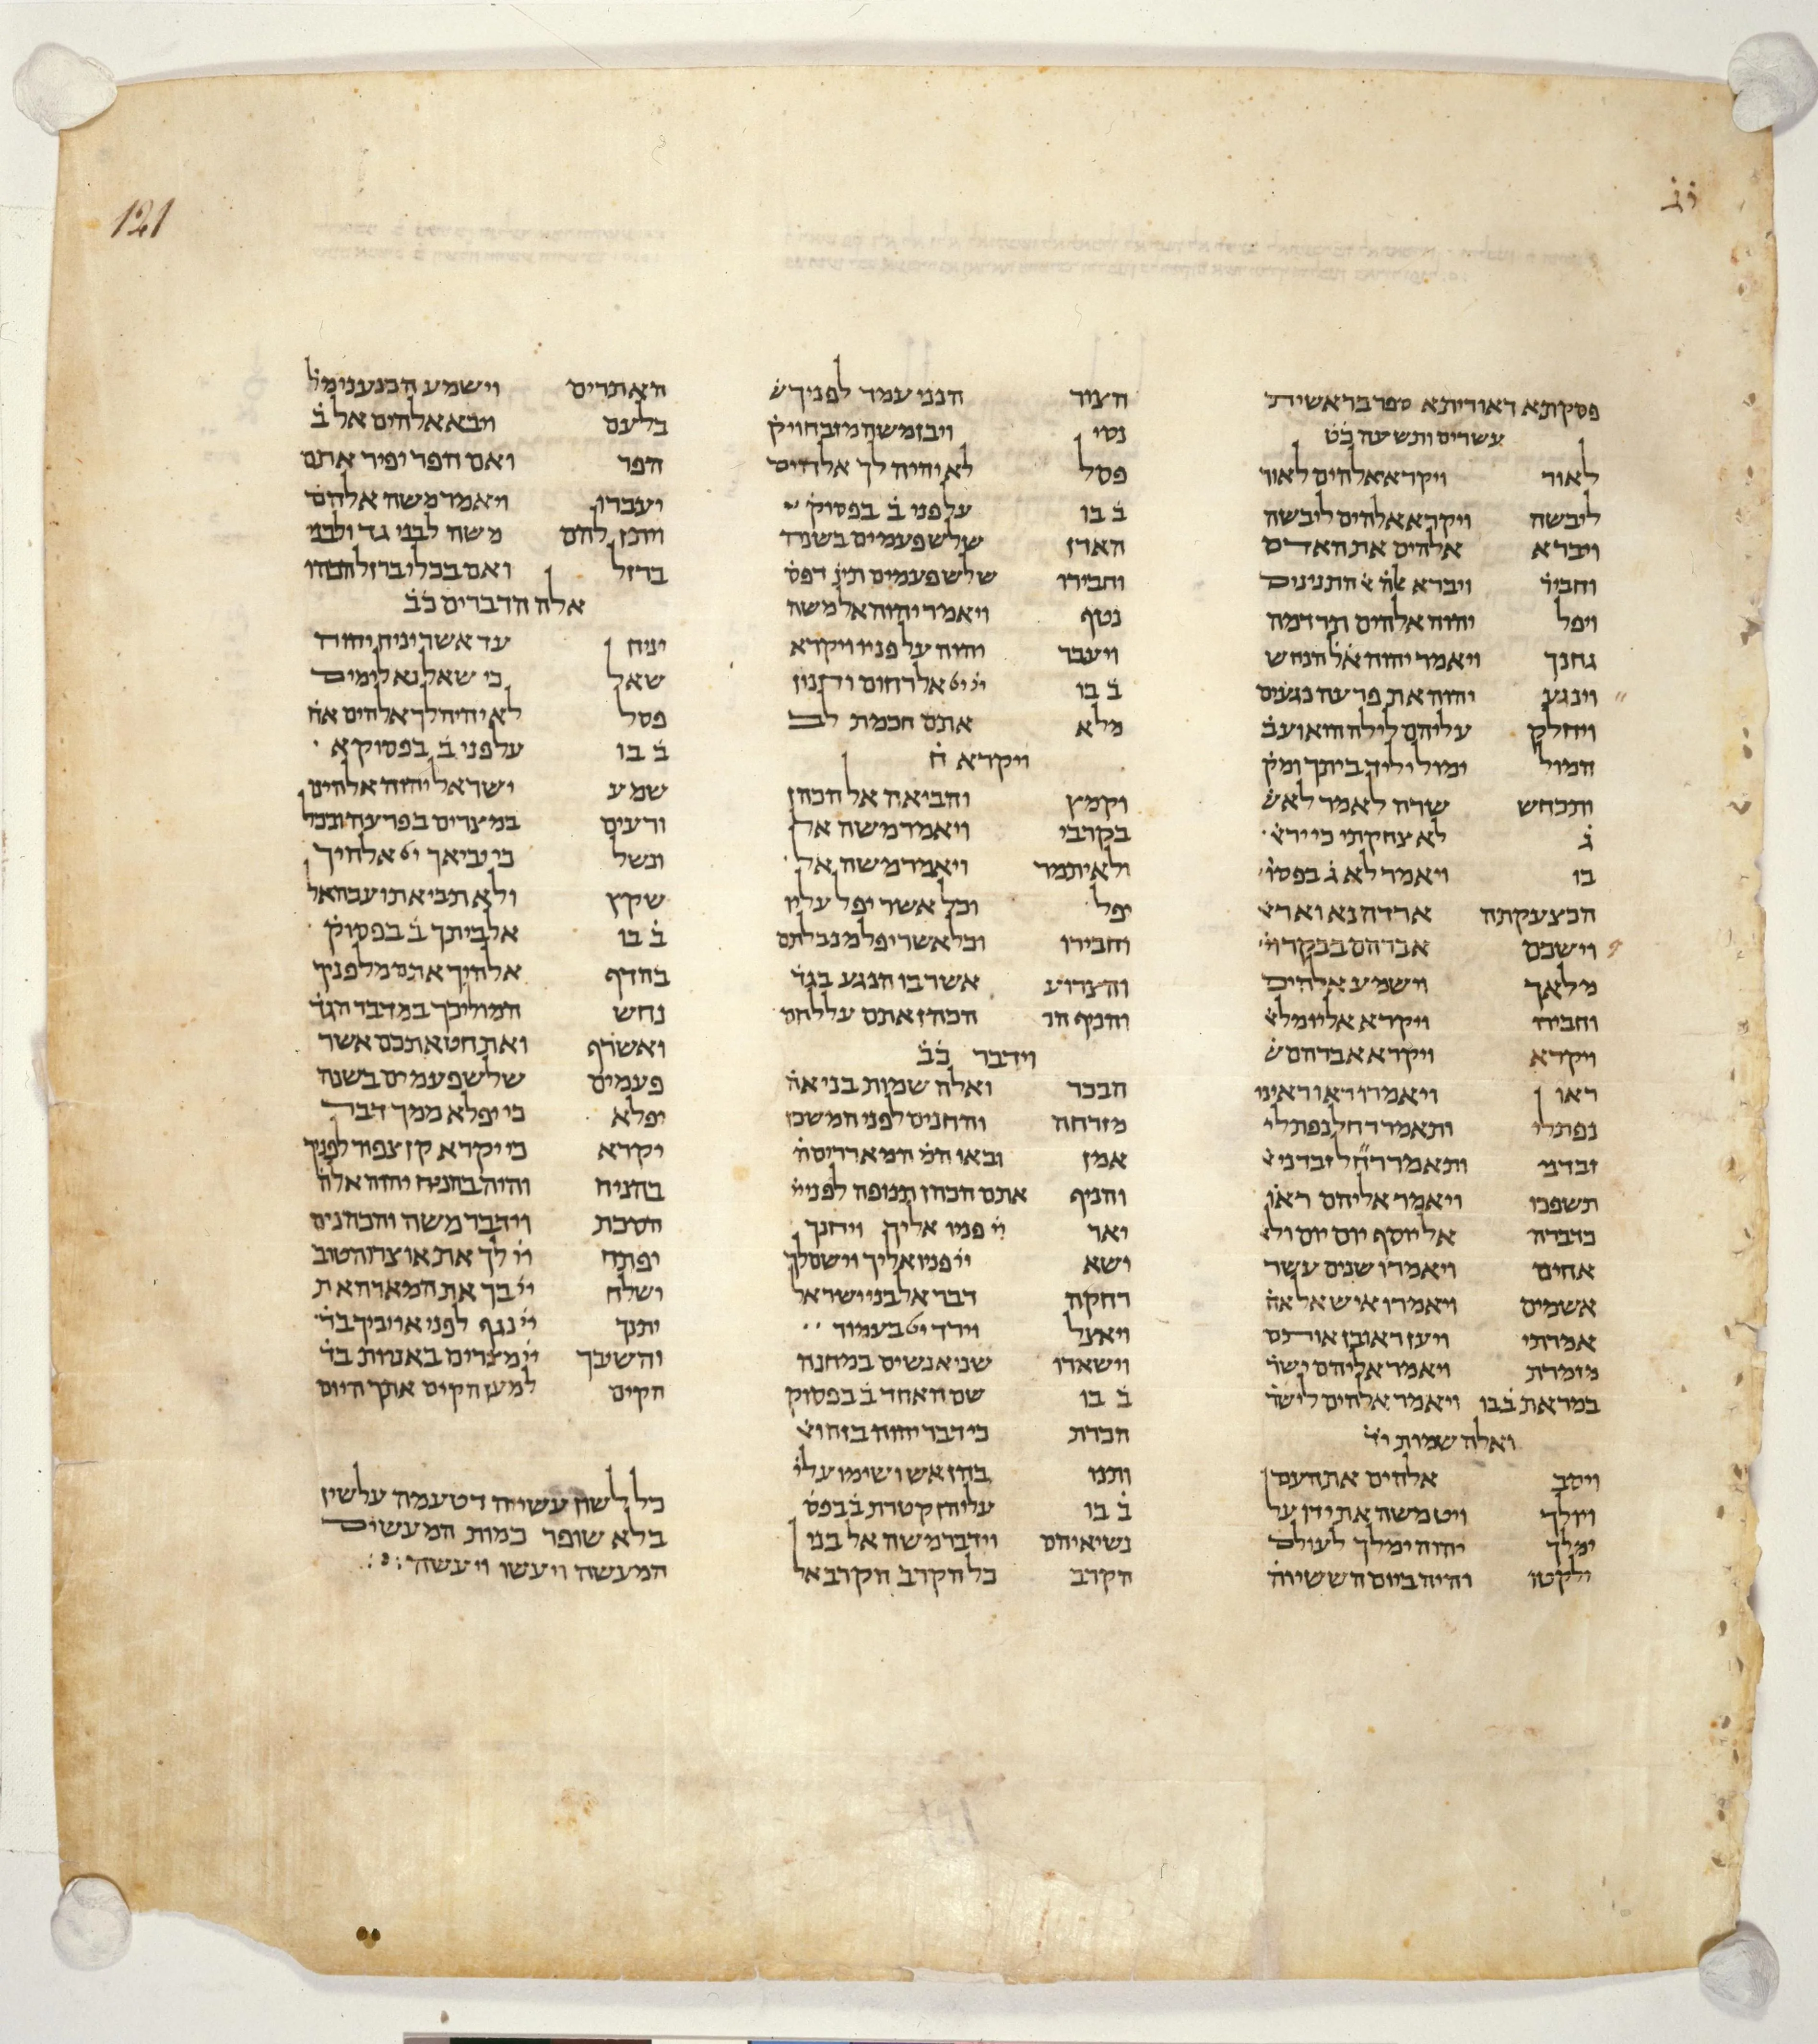 121
פסקתא דאוריתא ספר בראשית
עשרים ותשעה כ̇ט̇
לאור ויקרא אלהים לאור
ליבשה ויקרא אלהים ליבשה
ויברא אלהים את האדם
וחביר̇ ויברא התנינם
ויפל יהוה אלהים תרדמה
גחנך ויאמר יהוה אל̇ הנחש
וינגע יהוה את פרעה נגעים
ויחלק עליהם לילה הוא ועב̇
המול ימול יליד ביתך ומק̇
ותכחש שרה לאמר לא צ̇
ג̇ לא צחקתי כי יר̇א
בו ויאמר לא ג̇ בפסו̇
הכצעקתה ארדה נא ואר̇א
וישכם אברהם בבקר וי̇
מלאך וישמע אלהים
וחביר̇ ויקרא אליו מל̇א
ויקרא ויקרא אברהם ש̇
ראו ויאמרו ראו ראינו
נפתלי ותאמר רחל נפתלי
זבדני ותאמר זבדני א̇
תשפכו ויאמר אליהם ראו̇
כדברה אל יוסף יום יום ול̇א
אחים ויאמרו שנים עשר
אשמים ויאמרו איש אל אח̇
אמרתי ויען ראובן אותם
מזמרת ויאמר אליהם ישר̇
במראת ב̇ בו ויאמר אלהים לישר̇
ואלה שמות י̇ד̇
ויסב אלהים את העם
ויולך ויט משה את ידו על
ימלך יהוה ימלך לעולם
ילקטו והיה ביום הששי וה̇
הציר הנני עמד לפניך ש̇
נסי ויבן משה מזבח ויק̇
פסל לא יהיה לך אלהים
ב̇ בו על פני ב̇ בפסוק̇
הארן שלש פעמים בשנה
וחבירו שלש פעמים תינ̇ דפס̇
נטף ויאמר יהוה אל משה
ויעבר יהוה על פניו ויקרא
ב̇ בו אל רחום וחנון
מלא אתם חכמת לב
ויקרא ח̇
וקמץ והביאה אל הכהן
בקרבי ויאמר משה אל
ולאיתמר ויאמר משה אל
יפל וכל אשר יפל עליו
וחבירו וכל אשר יפל מנבלתם
והצרוע אשר בו הנגע בגד̇
והניף הכהן אתם על לחם
וידבר כ̇ב̇
הבכר ואלה שמות בני אה̇
מזרחה והחנים לפני המשכן
אמן ובאו המ̇ המאררים ה̇
והניף אתם הכהן תנופה לפני ייי
יאר יי̇ פניו אליך ויחנך
ישא יי̇ פניו אליך וישם לך
רחקה דבר אל בני ישראל
ויאצל וירד בעמוד
וישארו שני אנשים במחנה
ב̇ בו שם האחד ב̇ בפסוק
הכרת כי דבר יהוה בזה וא̇
ותנו בהן אש ושימו עלי̇
ב̇ בו עליהן קטרת ב̇ בפס̇
נשיאיהם וידבר משה אל בני
הקרב כל הקרב הקרב אל
האתרים וישמע הכנעני מל̇
בלעם ויבא אלהים אל ב̇
הפר ואם הפר יפיר אתם
יעברו ויאמר משה אלהם
ויתן להם משה לבני גד ולבני
ברזל ואם בכלי ברזל הכהו
אלה הדברים כ̇ב̇
יניח עד אשר יניח יהוה
שאל כי שאל נא לימים
פסל לא יהיה לך אלהים אח̇
ב̇ בו על פני ב̇ בפסוק א
שמע ישראל יהוה אלהינו
ורעים במצרים בפרעה ובכל
ונשל כי יביאך אלהיך
שקץ ולא תביא תועבה אל
ב̇ בו אל ביתך ב̇ בפסוק̇
בהדף אלהיך אתם מלפניך
נחש המוליכך במדבר הגד̇
ואשרף ואת חטאתכם אשר
פעמים שלש פעמים בשנה
יפלא כי יפלא ממך דבר
יקרא כי יקרא קן צפור לפניך
בהניח והיה בהניח יהוה אלה̇
הסכת וידבר משה והכהנים
יפתח יי̇ לך את אוצרו הטוב
ישלח יי̇ בך את המארה את
יתנך יי̇ נגף לפני אויביך בד̇
והשיבך יי̇ מצרים באניות בד̇
הקים למען הקים אתך היום
כל לשון עשייה דטעמה על שין
בלא שופר כמות המעשים
המעשה ויעשו ויעשה